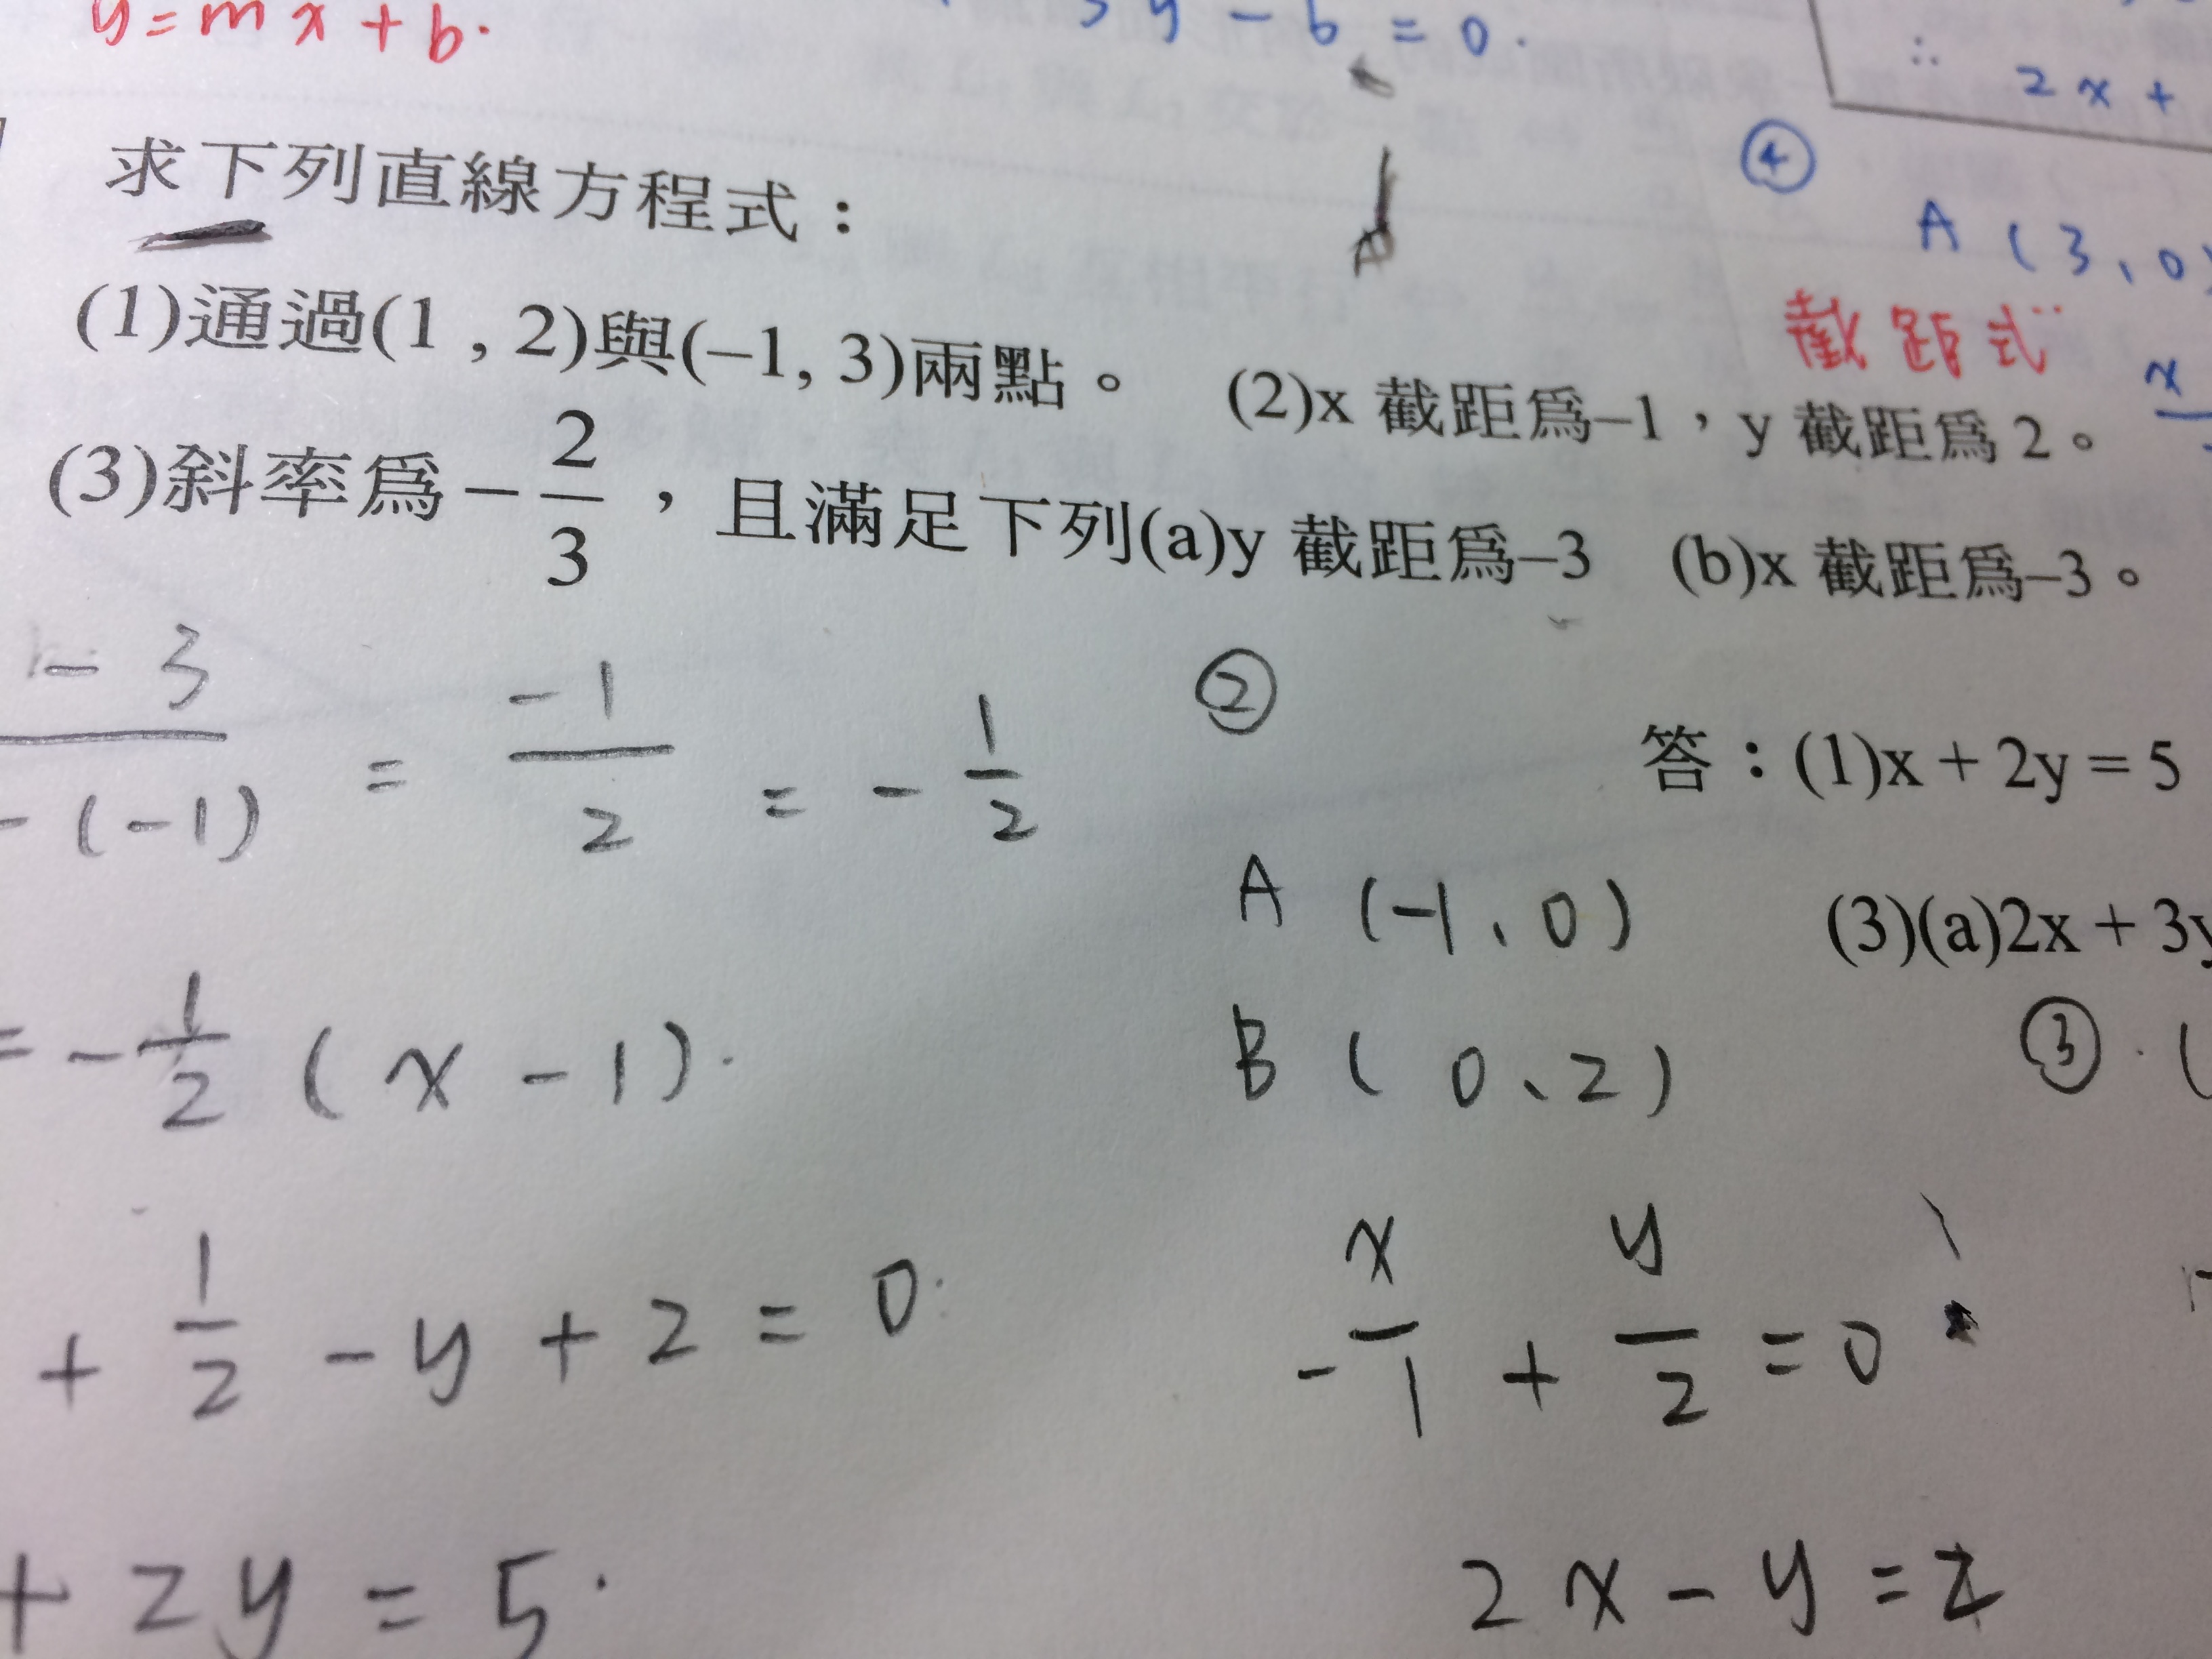 y = mx + b.
3y - 6 = 0.
∴ 2x +
④
A (3、0)
截距式
x
求下列直線方程式：
(1)通過(1 , 2)與(–1, 3)兩點。 (2)x 截距為–1，y 截距為 2。
(3)斜率為 –2/3，且滿足下列(a)y 截距為–3 (b)x 截距為–3。
- 3 / - (-1) = -1/2 = - 1/2
= - 1/2 (x - 1).
+ 1/2 - y + 2 = 0.
+ 2y = 5.
②
A (-1、0)
B (0、2)
- x/1 + y/2 = 0
2x - y = 2
答：(1)x + 2y = 5
(3)(a)2x + 3y
③ . (